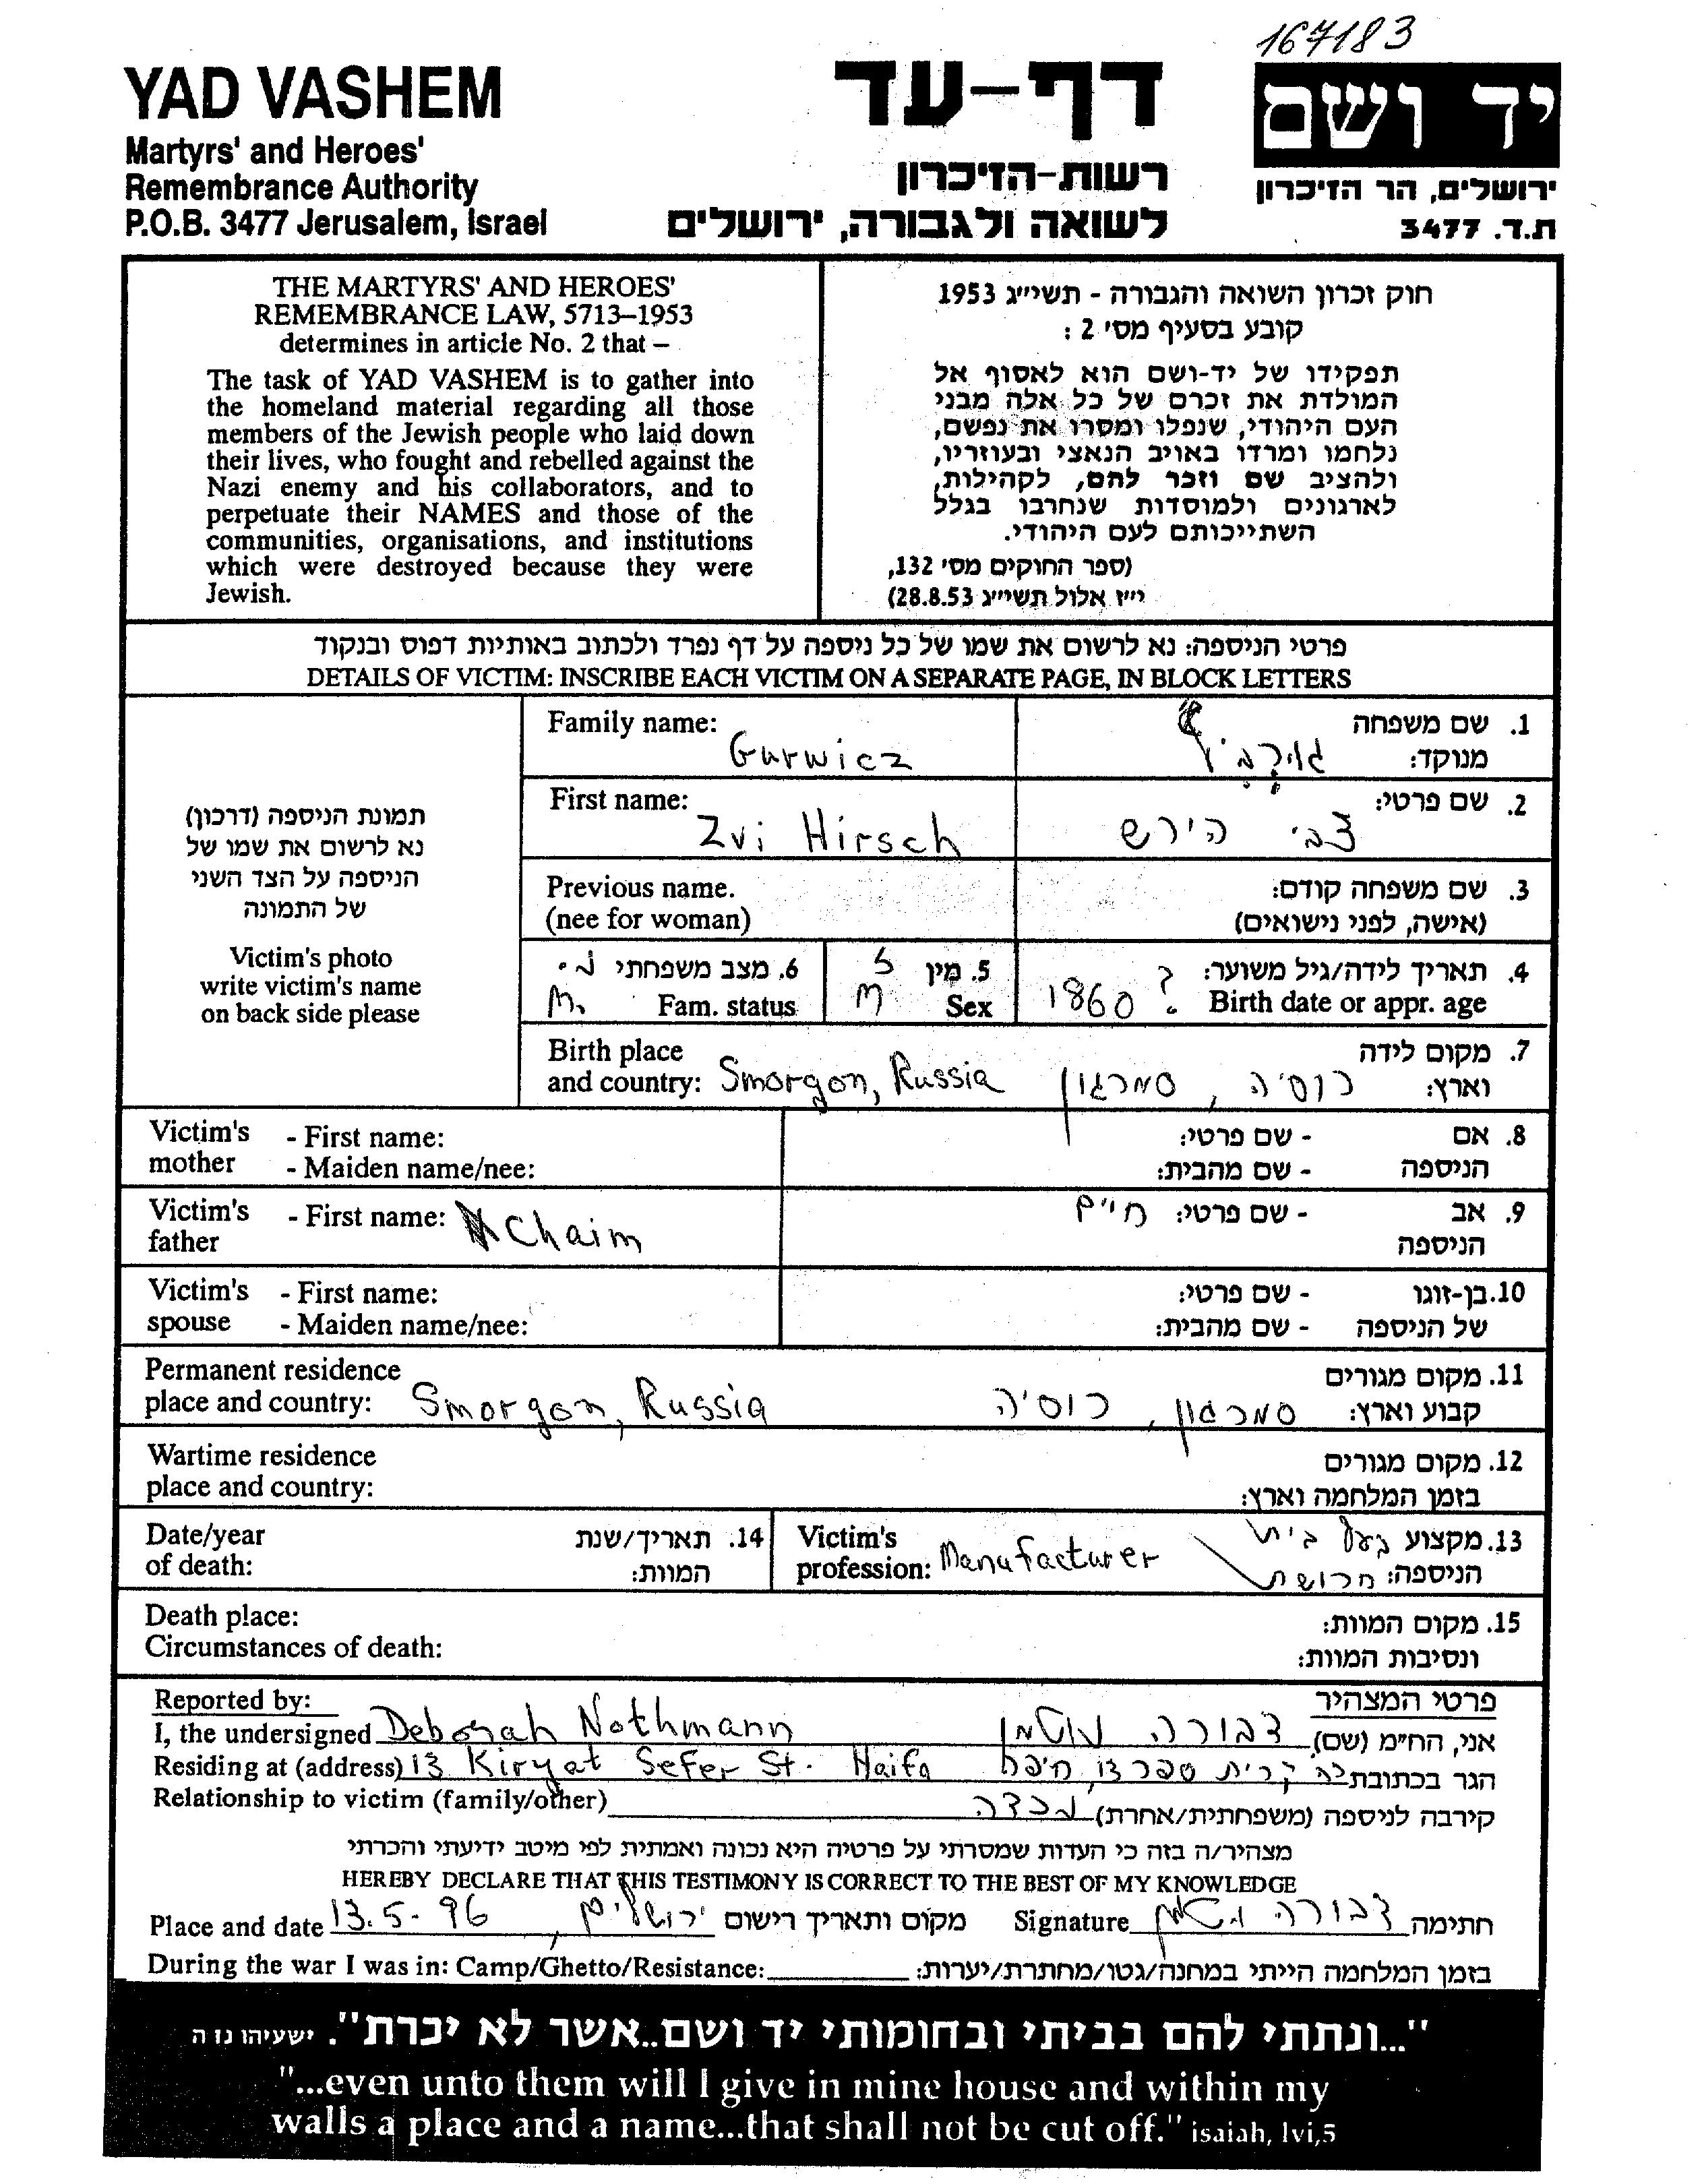 167183
YAD VASHEM
Martyrs' and Heroes'
Remembrance Authority
P.O.B. 3477 Jerusalem, Israel
דף-עד
רשות-הזיכרון
לשואה ולגבורה, ירושלים
יד ושם
ירושלים, הר הזיכרון
ת.ד. 3477
THE MARTYRS' AND HEROES'
REMEMBRANCE LAW, 5713–1953
determines in article No. 2 that –
The task of YAD VASHEM is to gather into
the homeland material regarding all those
members of the Jewish people who laid down
their lives, who fought and rebelled against the
Nazi enemy and his collaborators, and to
perpetuate their NAMES and those of the
communities, organisations, and institutions
which were destroyed because they were
Jewish.
חוק זכרון השואה והגבורה - תשי״ג 1953
קובע בסעיף מס׳ 2 :
תפקידו של יד-ושם הוא לאסוף אל
המולדת את זכרם של כל אלה מבני
העם היהודי, שנפלו ומסרו את נפשם,
נלחמו ומרדו באויב הנאצי ובעוזריו,
ולהציב שם וזכר להם, לקהילות,
לארגונים ולמוסדות שנחרבו בגלל
השתייכותם לעם היהודי.
(ספר החוקים מס׳ 132,
י״ז אלול תשי״ג 28.8.53)
פרטי הניספה: נא לרשום את שמו של כל ניספה על דף נפרד ולכתוב באותיות דפוס ובנקוד
DETAILS OF VICTIM: INSCRIBE EACH VICTIM ON A SEPARATE PAGE, IN BLOCK LETTERS
תמונת הניספה (דרכון)
נא לרשום את שמו של
הניספה על הצד השני
של התמונה
Victim's photo
write victim's name
on back side please
Family name: Gurwicz
1. שם משפחה
מנוקד:
First name: Zvi Hirsch
2. שם פרטי: צבי הירש
Previous name.
(nee for woman)
3. שם משפחה קודם:
(אישה, לפני נישואים)
6. מצב משפחתי נ.
M. Fam. status
5. מין
M Sex
4. תאריך לידה/גיל משוער:
1860 ? Birth date or appr. age
Birth place
and country: Smorgon, Russia
7. מקום לידה
וארץ: רוסיה, סמרגון
Victim's - First name:
mother - Maiden name/nee:
8. אם - שם פרטי:
הניספה - שם מהבית:
Victim's - First name: Chaim
father
9. אב - שם פרטי: חיים
הניספה
Victim's - First name:
spouse - Maiden name/nee:
10. בן-זוגו - שם פרטי:
של הניספה - שם מהבית:
Permanent residence
place and country: Smorgon, Russia
11. מקום מגורים
קבוע וארץ: סמרגון, רוסיה
Wartime residence
place and country:
12. מקום מגורים
בזמן המלחמה וארץ:
Date/year
of death:
14. תאריך/שנת
המוות:
Victim's
profession: Manufacturer
13. מקצוע בעל בית
הניספה: חרושת
Death place:
Circumstances of death:
15. מקום המוות:
ונסיבות המוות:
Reported by:
פרטי המצהיר
I, the undersigned Deborah Nothmann
אני, הח״מ (שם) דבורה נוטמן
Residing at (address) 13 Kiryat Sefer St. Haifa
הגר בכתובת קרית ספר 13, חיפה
Relationship to victim (family/other)
קירבה לניספה (משפחתית/אחרת) נכדה
מצהיר/ה בזה כי העדות שמסרתי על פרטיה היא נכונה ואמתית לפי מיטב ידיעתי והכרתי
HEREBY DECLARE THAT THIS TESTIMONY IS CORRECT TO THE BEST OF MY KNOWLEDGE
Place and date 13.5.96 מקום ותאריך רישום ירושלים,
Signature דבורה נוטמן חתימה
During the war I was in: Camp/Ghetto/Resistance:
בזמן המלחמה הייתי במחנה/גטו/מחתרת/יערות:
"...ונתתי להם בביתי ובחומותי יד ושם..אשר לא יכרת". ישעיהו נו ה
"...even unto them will I give in mine house and within my
walls a place and a name...that shall not be cut off." isaiah, lvi,5